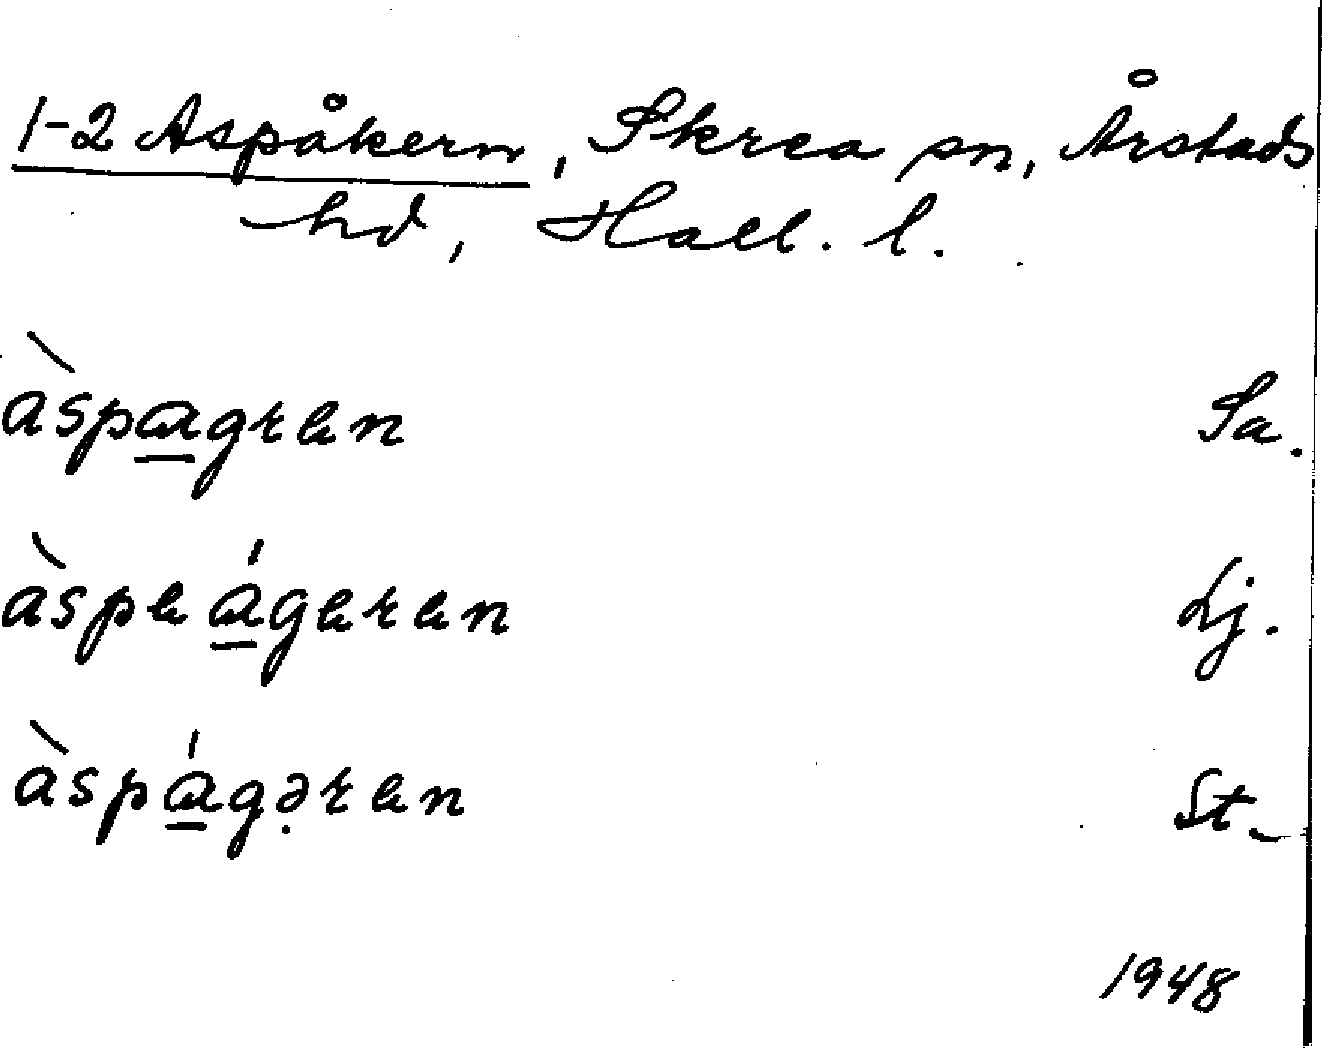 1-2 Aspåkern, Skrea sn, Årstads
hd, Hall. l.
àspa̲gren Sa.
àspeá̲geren Lj.
àspá̲gə̣ren St.
1948